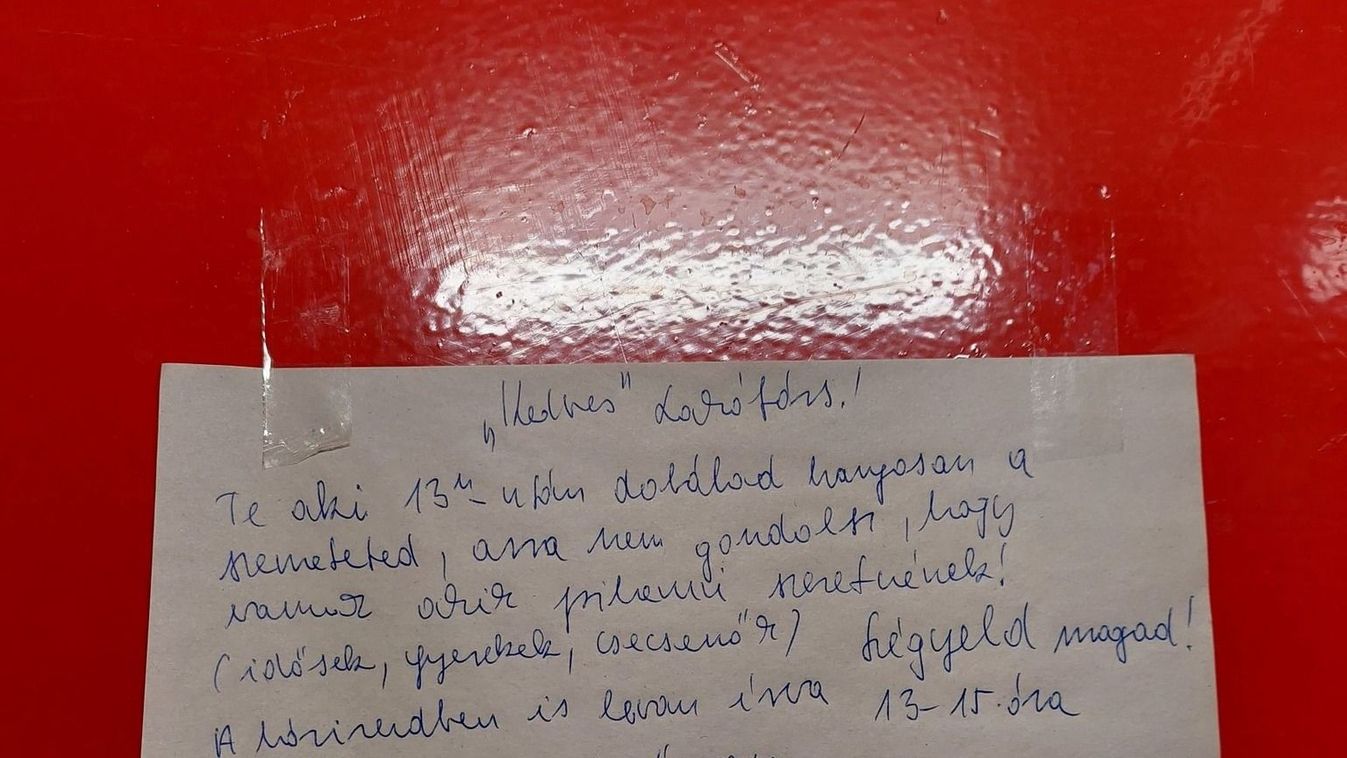 „Kedves" Lakótárs!
Te aki 13h után dobálod hangosan a
szemeted, arra nem gondolsz, hogy
vannak akik pihenni szeretnének!
(idősek, gyerekek, csecsemők) Szégyeld magad!
A házirendben is levan írva 13-15. óra